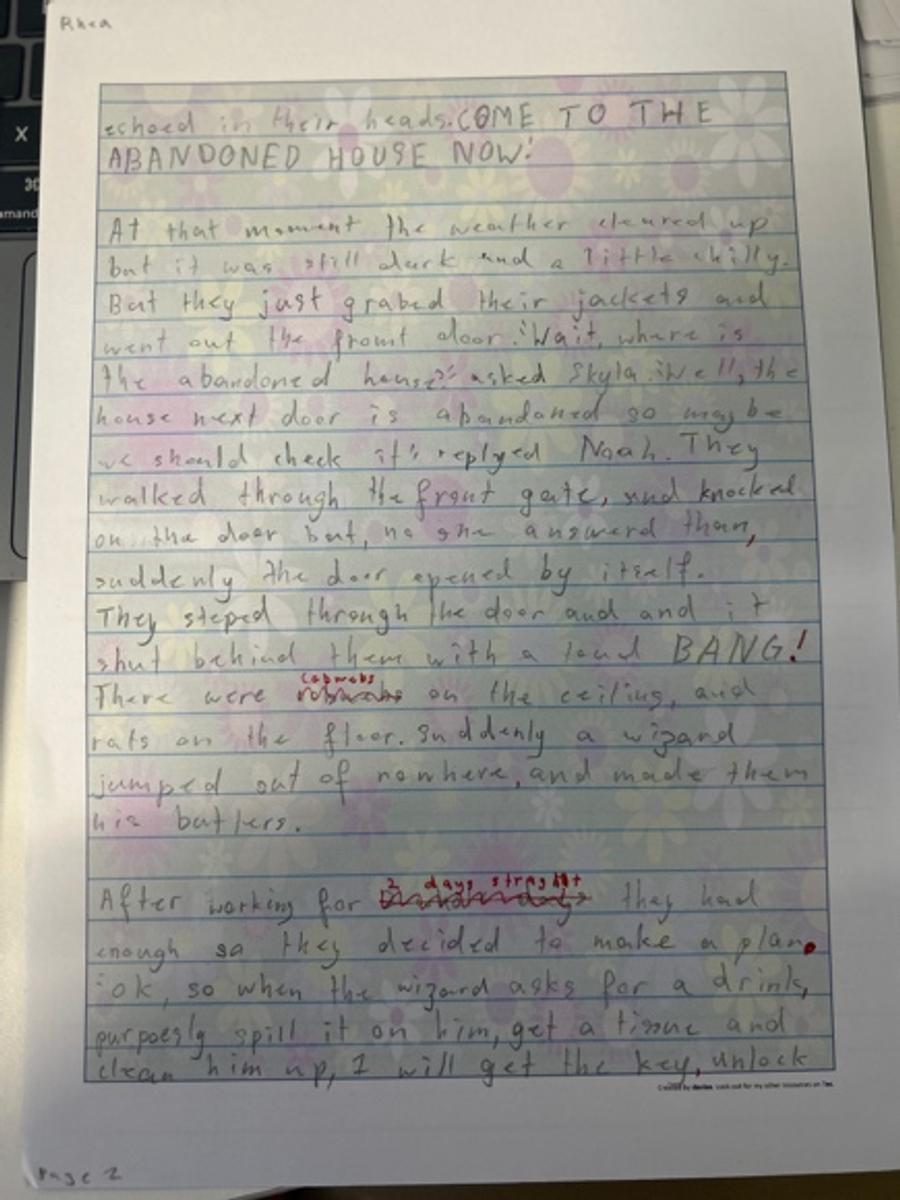 Rhea
echoed in their heads. COME TO THE
ABANDONED HOUSE NOW!
At that moment the weather cleared up
but it was still dark and a little chilly.
But they just grabed their jackets and
went out the front door. "Wait, where is
the abandoned house?" asked Skyla. "Well, the
house next door is abandoned so maybe
we should check it" replyed Noah. They
walked through the front gate, and knocked
on the door but, no one answerd then,
suddenly the door opened by itself.
They steped through the door and and it
shut behind them with a loud BANG!
cobwebs
There were on the ceiling, and
rats on the floor. Suddenly a wizard
jumped out of nowhere, and made them
his butlers.
2 days straght
After working for they had
enough so they decided to make a plan.
"ok, so when the wizard asks for a drink,
purpoesly spill it on him, get a tissue and
clean him up, I will get the key, unlock
Page 2